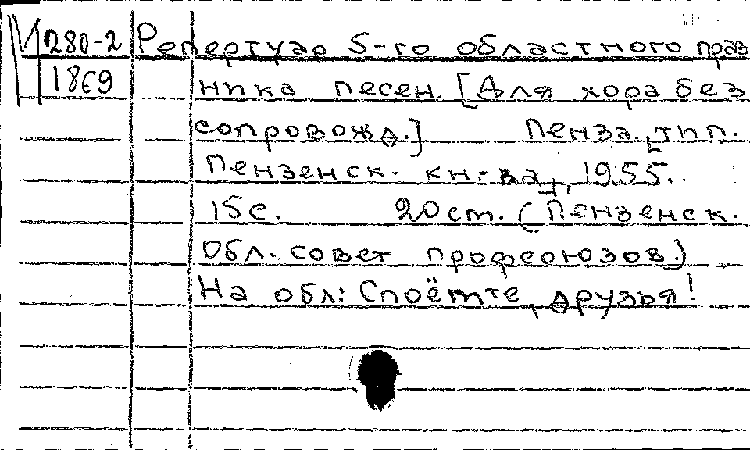 М 280-2
1869
Репертуар 5-го областного празд
ника песен. [Для хора без
сопровожд.] Пенза, тип.
Пензенск. кн-ва, 1955.
15 с. 20 cm. (Пензенск.
Обл. совет профсоюзов)
На обл: Споёмте, друзья!